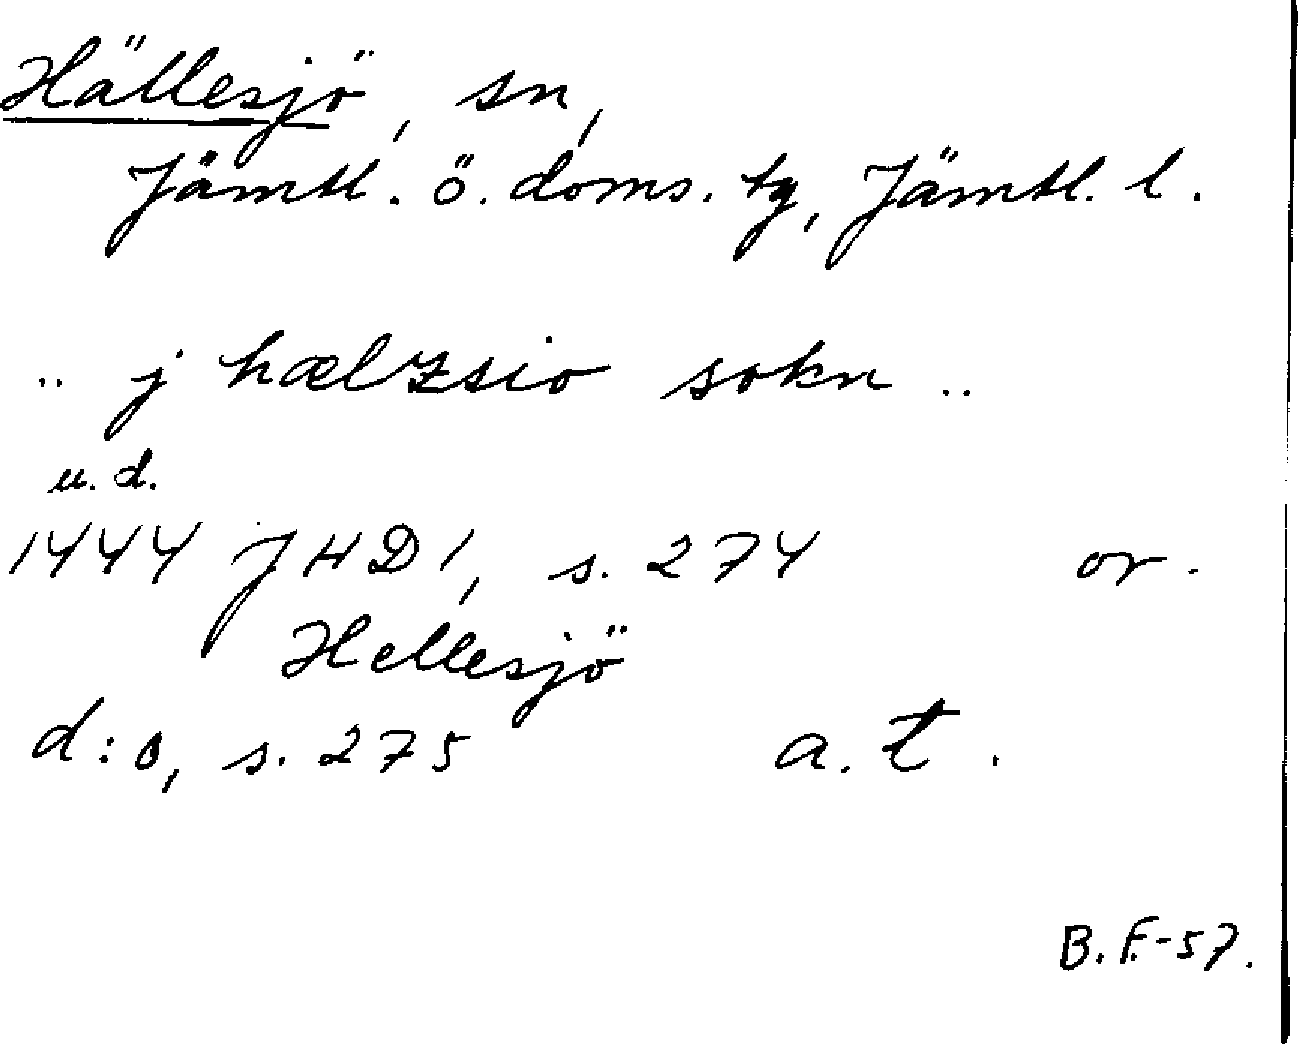 Hällesjö, sn,
Jämtl. ö. doms. tg, Jämtl. l.
.. j hælzsio sokn ..
u.d.
1444 JHD 1, s. 274 or.
Hellesjö
d:o, s. 275 a.t.
B.F.-57.